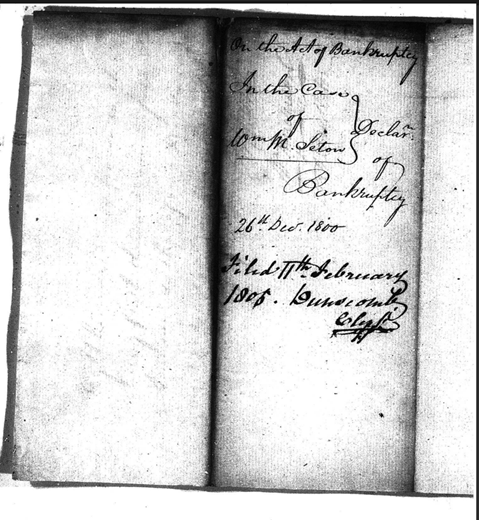 On the Act of Bankruptcy
In the Case
of
Wm M Seton
Declarn.
of
Bankruptcy
26th Dec. 1800
Filed 11th February
1805. Dunscomb
Clerk